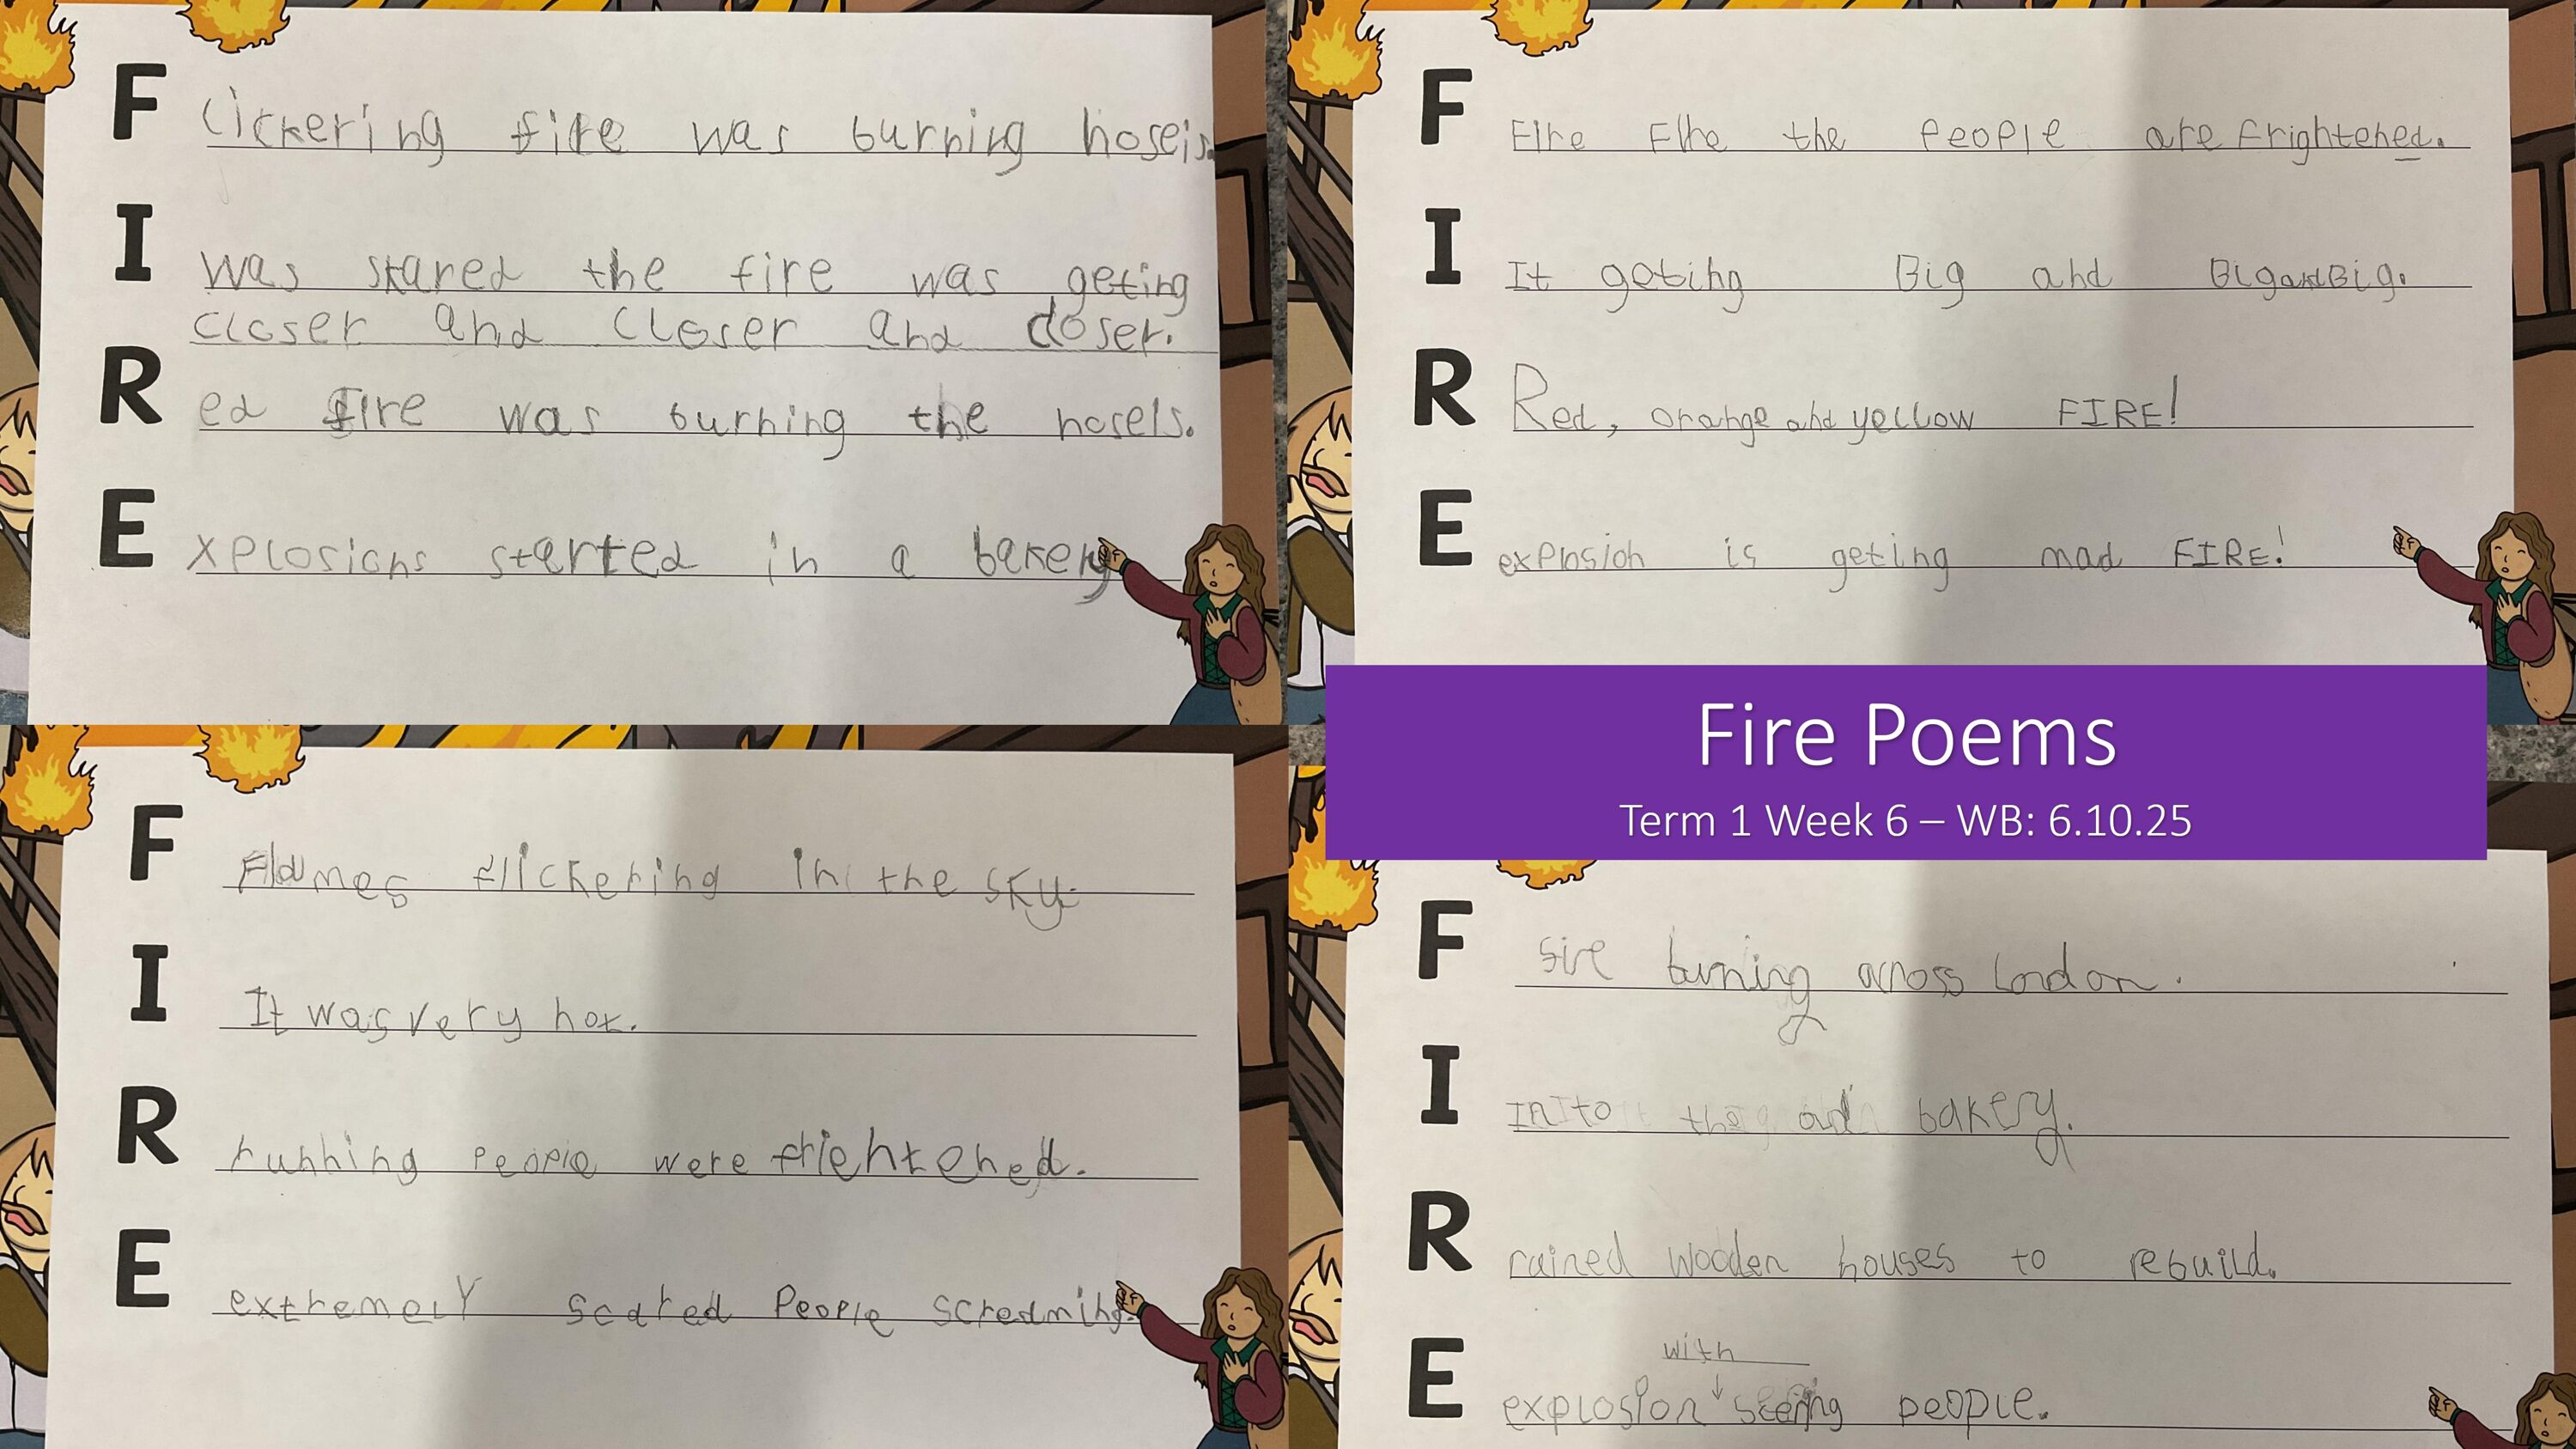 F lickering fire was burning hoseis.
I was skared the fire was geting
closer and closer and closer.
R ed fire was burning the hosels.
E xplosions started in a bakery
F Fire Fire the people are frightened.
I It geting Big and BigandBig.
R Red, orange and yellow FIRE!
E explosion is geting mad FIRE!
Fire Poems
Term 1 Week 6 – WB: 6.10.25
F Flames flickering in the sky.
I It was very hot.
R running people were frientened.
E extremely scared People screaming.
F fire burning across London.
I INIto the bakery.
R rained wooden houses to rebuild.
with
E explosion seeing people.